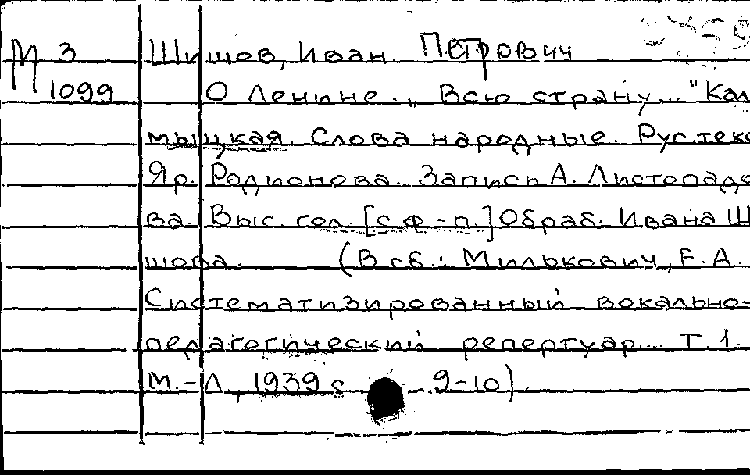 М 3 Шишов, Иван Петрович
1099 О Ленине. „Всю страну..." Кал
мыцкая. Слова народные. Рус. текс
Яр. Родионова. Запись А. Листопадо
ва. Выс. гол. [с ф-п.] Обраб. Ивана Ш
шова. (В сб.: Милькович, Е.А.
Систематизированный вокально-
педагогический репертуар... Т.1.
М.-Л., 1939 с 9-10)